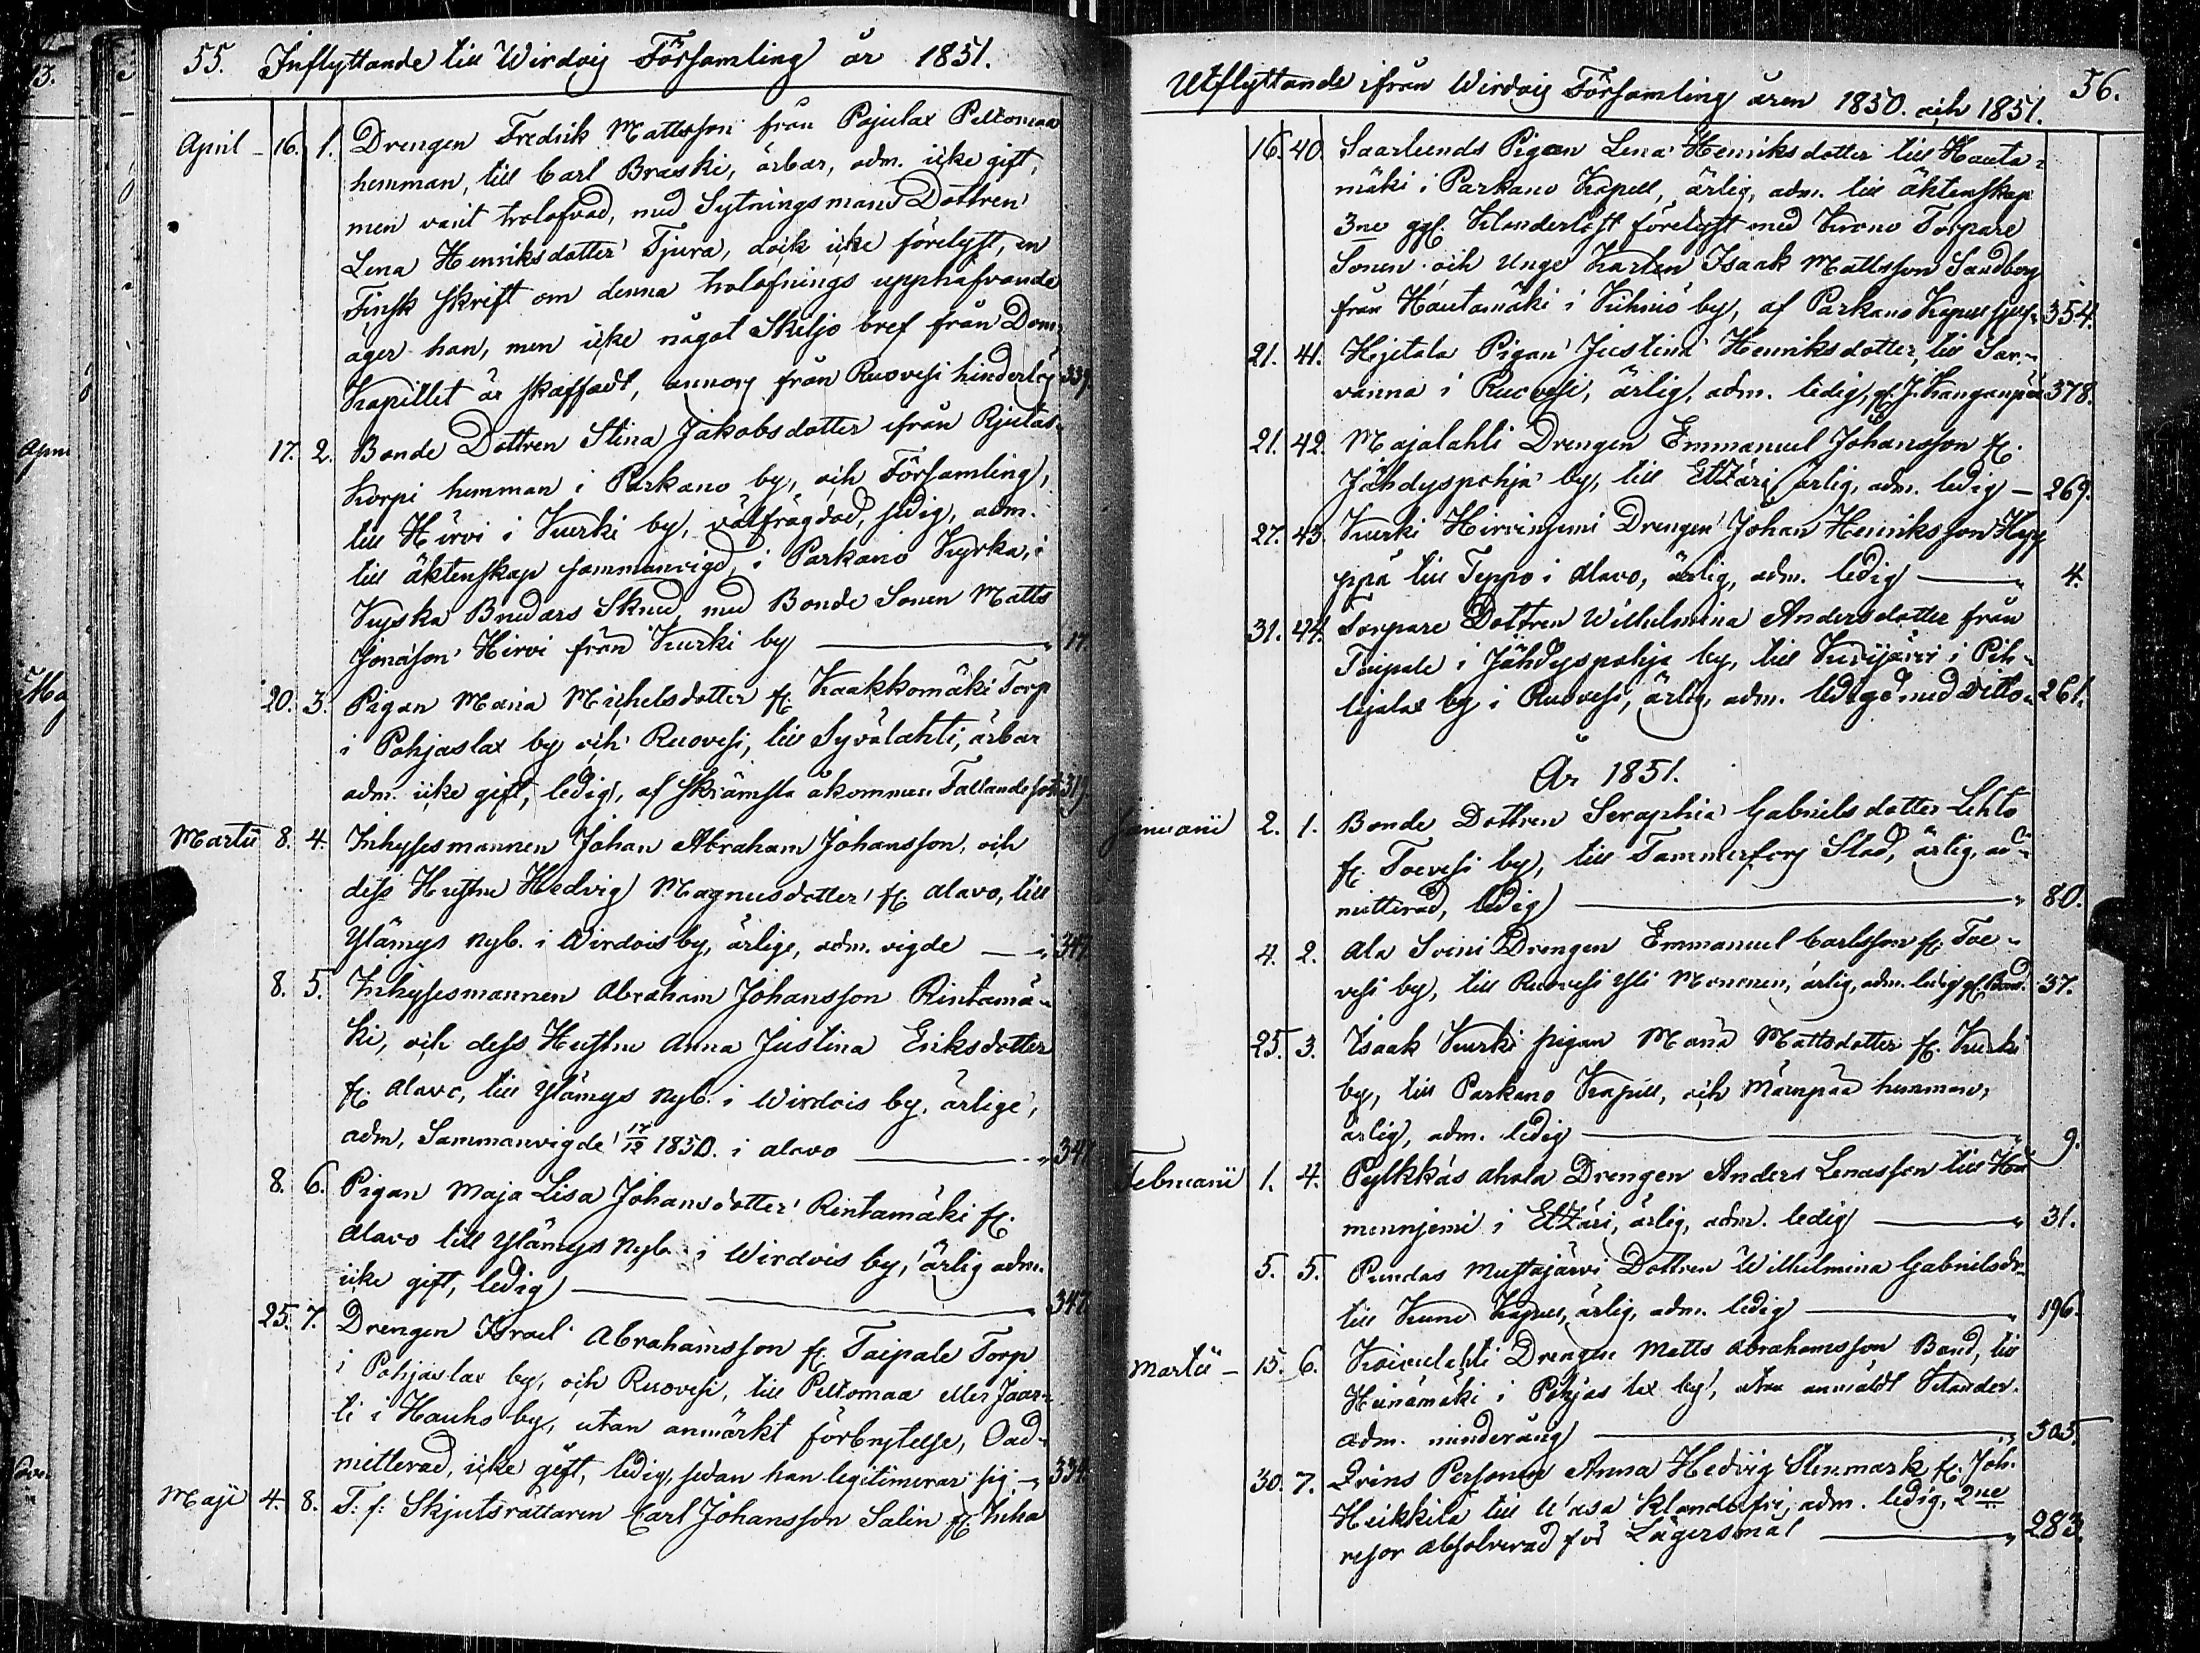 55. Inflyttande till Wirdois Församling år 1851.
April 16. 1. Drengen Fredrik Mattsson från Pajulax Peltomaa
hemman, till Carl Braski, ärbar, adm. icke gift,
men varit trolofvad, med Sytningsmans Dottren
Lena Henriksdotter Tjura, dock icke förelyst, en
Finsk skrift om denna trolofnings upphäfvande
äger han, men icke något Skiljo bref från Dom
Kapitlet är skaffadt, annors från Ruovesi hinderlös 339.
17. 2. Bonde Dottren Stina Jakobsdotter ifrån Rjutas-
korpi hemman i Parkano by, och Församling,
till Hirvi i Kurki by, välfrägdad, ledig, adm.
till äktenskap sammanvigd, i Parkano Kyrka, i
Kyska Brudars Skrud med Bonde Sonen Matts
Jonasson Hirvi från Kurki by 17.
20. 3. Pigan Maria Michelsdotter fr. Kaakkomäki Torp
i Pohjaslax by och Ruovesi, till Syvälahti, ärbar
adm. icke gift, ledig, af skrämsla åkommen Fallandesot 319.
Martii 8. 4. Inhysesmannen Johan Abraham Johansson, och
dess Hustru Hedvig Magnusdotter fr. Alavo, till
Ylämys Nyb. i Wirdois by, ärlige, adm. vigde 347.
8. 5. Inhysesmannen Abraham Johansson Rintamä-
ki, och dess Hustru Anna Justina Eriksdotter
fr. Alavo, till Ylämys Nyb. i Wirdois by, ärlige,
adm, Sammanvigde 17/12 1850. i Alavo 347
8. 6. Pigan Maja Lisa Johansdotter Rintamäki fr.
Alavo till Ylämys Nyb. i Wirdois by, ärlig adm.
icke gift, ledig 347.
25. 7. Drengen Israel Abrahamsson fr. Taipale Torp
i Pohjaslax by, och Ruovesi, till Peltomaa eller Jaar-
li i Hauho by, utan anmärkt förbrytelse, Oad-
mitterad, icke gift, ledig, sedan han legitimerar sig 334.
Maji 4. 8. T: f: Skjutsrättaren Carl Johansson Salin fr. Inha
Utflyttande ifrån Wirdois Församling åren 1850. och 1851. 56.
16. 40. Saarlunds Pigan Lena Henriksdotter till Hauta-
mäki i Parkano Kapell, ärlig, adm. till äktenskap
3ne ggr. Klanderlöst förelyst med Krono Torpare
Sonen och Unge Karlen Isaak Mattsson Sandberg
från Hautamäki i Kihniö by, af Parkano Kapell 354.
21. 41. Hjetala Pigan Justina Henriksdotter, till Sar-
vanna i Ruovesi, ärlig, adm. ledig, gf. J. Kanganpää 378.
21. 42. Majalahti Drengen Emmanuel Johansson fr.
Jähdyspohja by, till Etzäri ärlig, adm. ledig 269.
27. 43. Kurki Hirvinjemi Drengen Johan Henriksson
till Teppo i Alavo, ärlig, adm. ledig 4.
31. 44. Torpare Dottren Wilhelmina Andersdotter från
Taipale i Jähdyspohja by, till Kurjärvi i Pih-
lajalax by i Ruovesi, ärlig, adm. ledig 261.
År 1851.
Januarii 2. 1. Bonde Dottren Seraphia Gabrielsdotter Lehto
fr. Toevesi by, till Tammerfors Stad, ärlig, ad-
mitterad, ledig 80.
4. 2. Ala Soini Drengen Emmanuel Carlsson fr. Toe-
vesi by, till Ruovesi Yli Mononen, ärlig, adm. ledig 37.
25. 3. Isaak Kurki pigan Maria Mattsdotter fr. Kurki
by, till Parkano Kapell, och Männpää hemman,
ärlig, adm. ledig 9.
Februarii 1. 4. Pylkkäs Ahola Drengen Anders Lenasson till
i Etzäri, ärlig, adm. ledig 31.
5. 5. Pundas Mustajärvi Dottren Wilhelmina Gabrielsdr
till Kapell, ärlig, adm. ledig 196.
Martii 15. 6. Koivulahti Drengen Matts Abrahamsson Band, till
Heinämäki i Pohjas lax by, utan anmäldt Klander.
adm. minderårig 305.
30. 7. Qvins Personen Anna Hedvig Stenmark fr. Joh.
Heikkilä till Wasa Klanderfri, adm. ledig, 2ne
resor absolverad för Lägersmål 283.